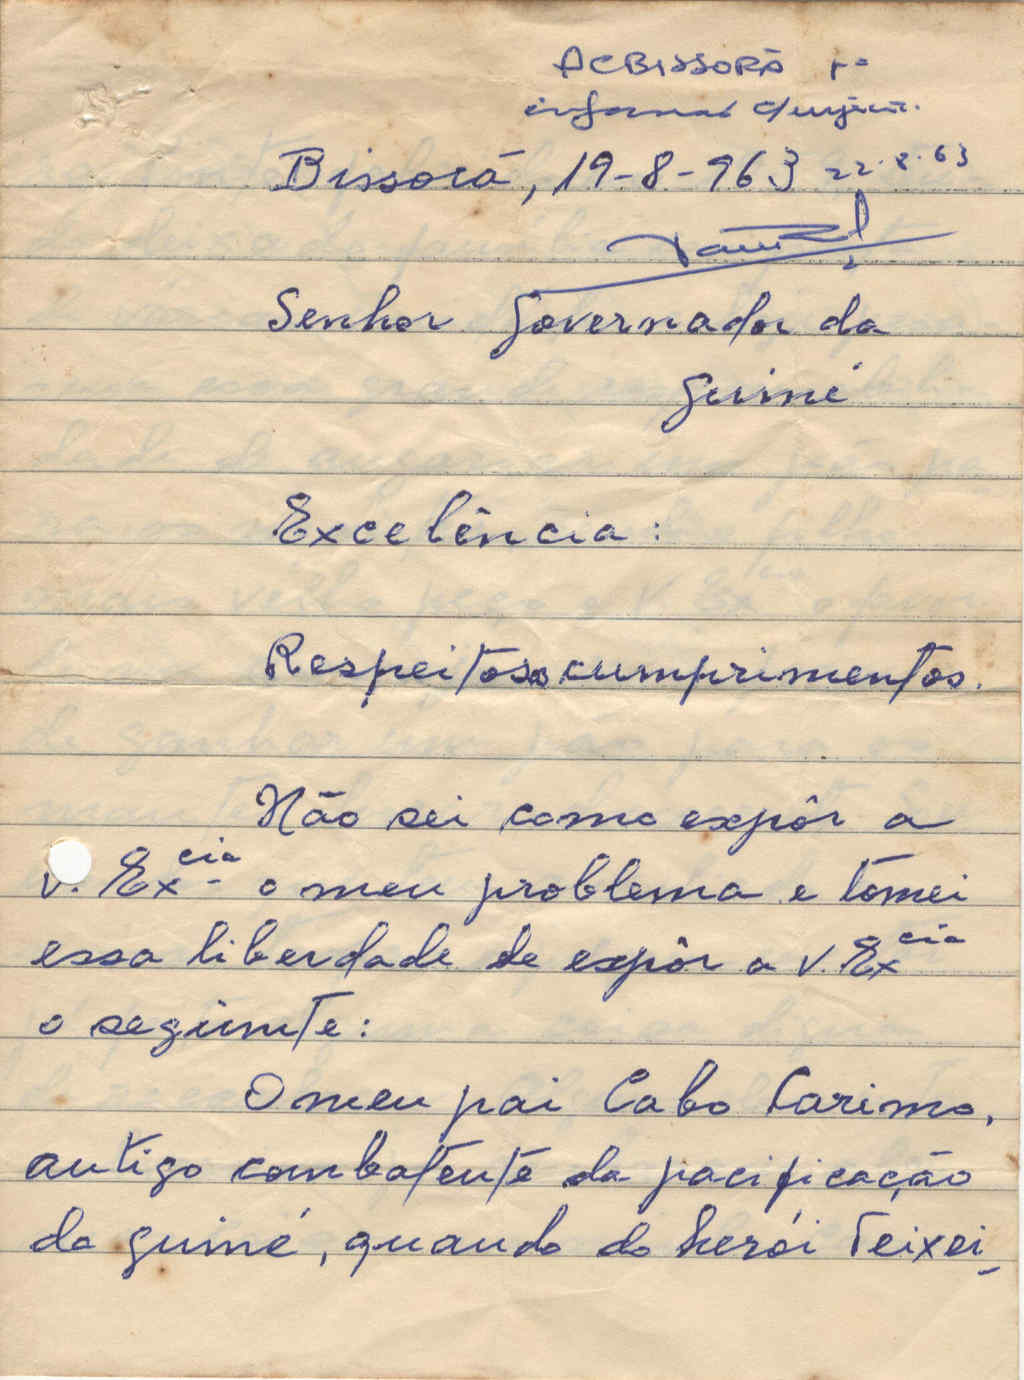 ACBISSORÃ pª
informar c/urgência.
Bissorã, 19-8-963 22.8.63
Senhor Governador da
Guiné
Excelência:
Respeitosos cumprimentos.
Não sei como expôr a
V. Ex.cia o meu problema e tomei
essa liberdade de expôr a V. Excia
o seguinte:
O meu pai Cabo Carimo,
antigo combatente da pacificação
da Guiné, quando do herói Teixei-